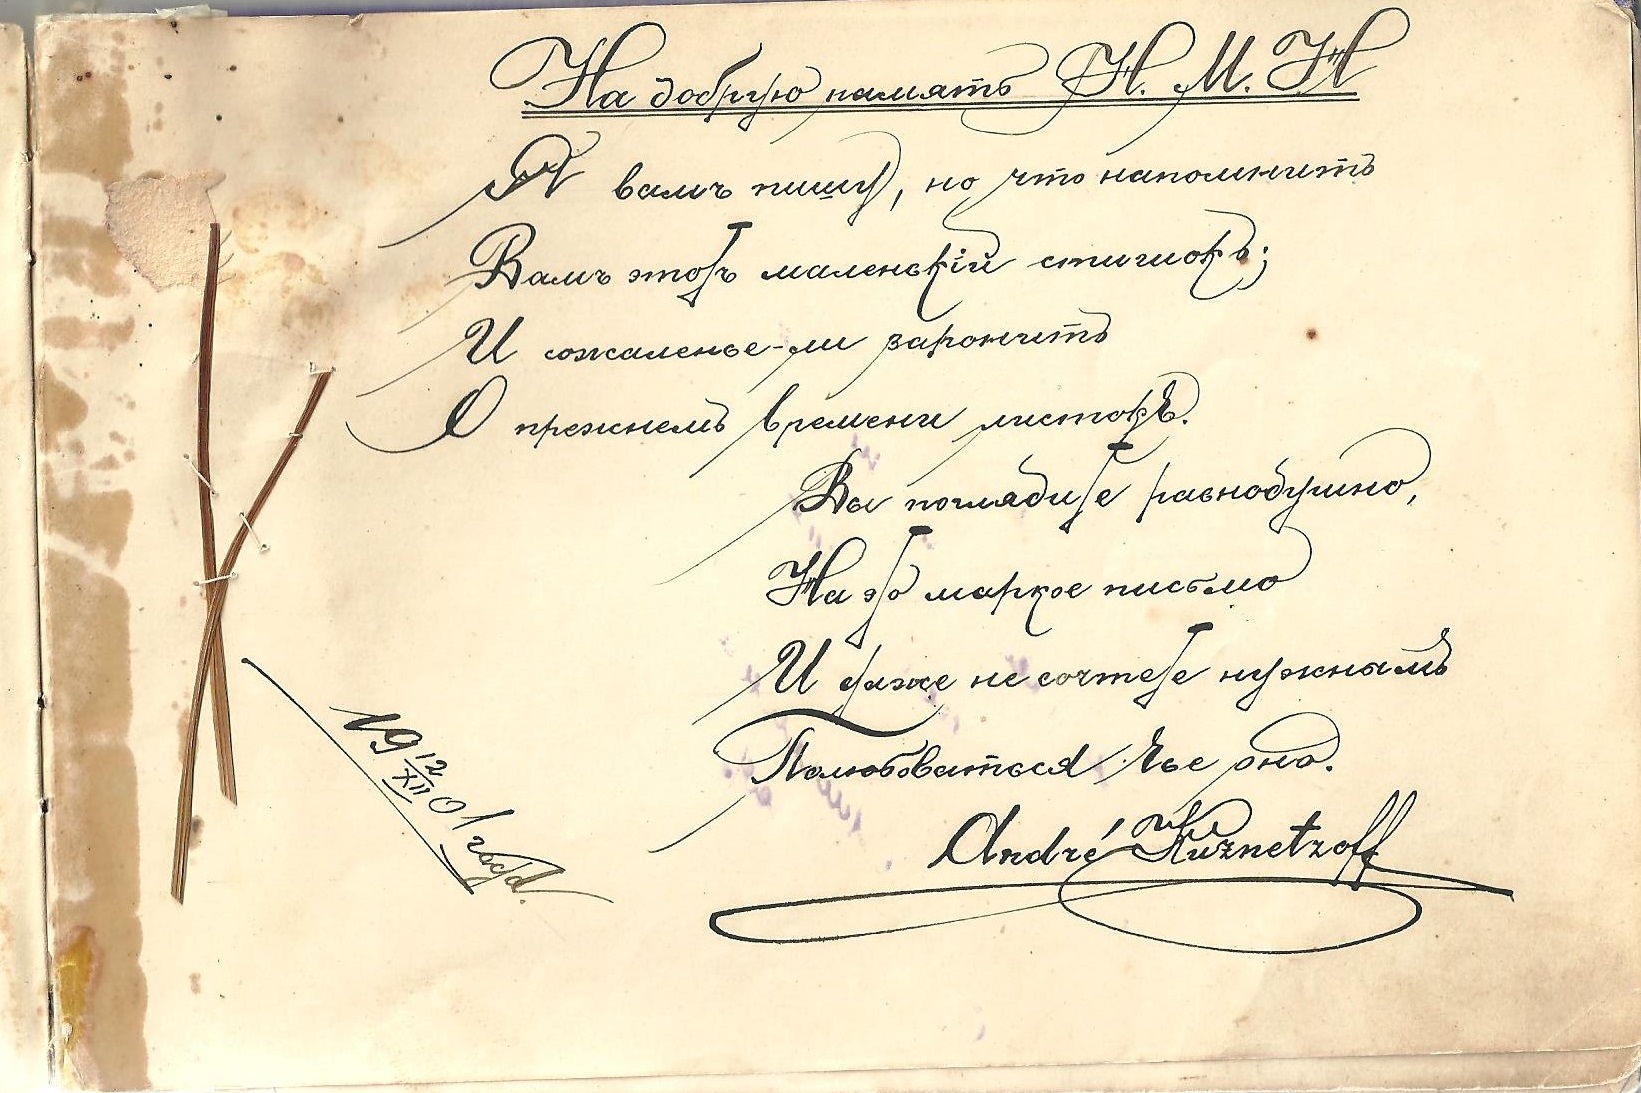 На добрую память Н. М. Н
Я вамъ пишу, но что напомнитъ
Вамъ этотъ маленькій стишокъ;
И сожаленье-ли заронитъ
О прежнемъ времени листокъ.
Вы поглядите равнодушно,
На это маркое письмо
И даже не сочтете нужнымъ
Полюбоваться
оно.
André Kuznetzoff
19 12/XII 01 года.